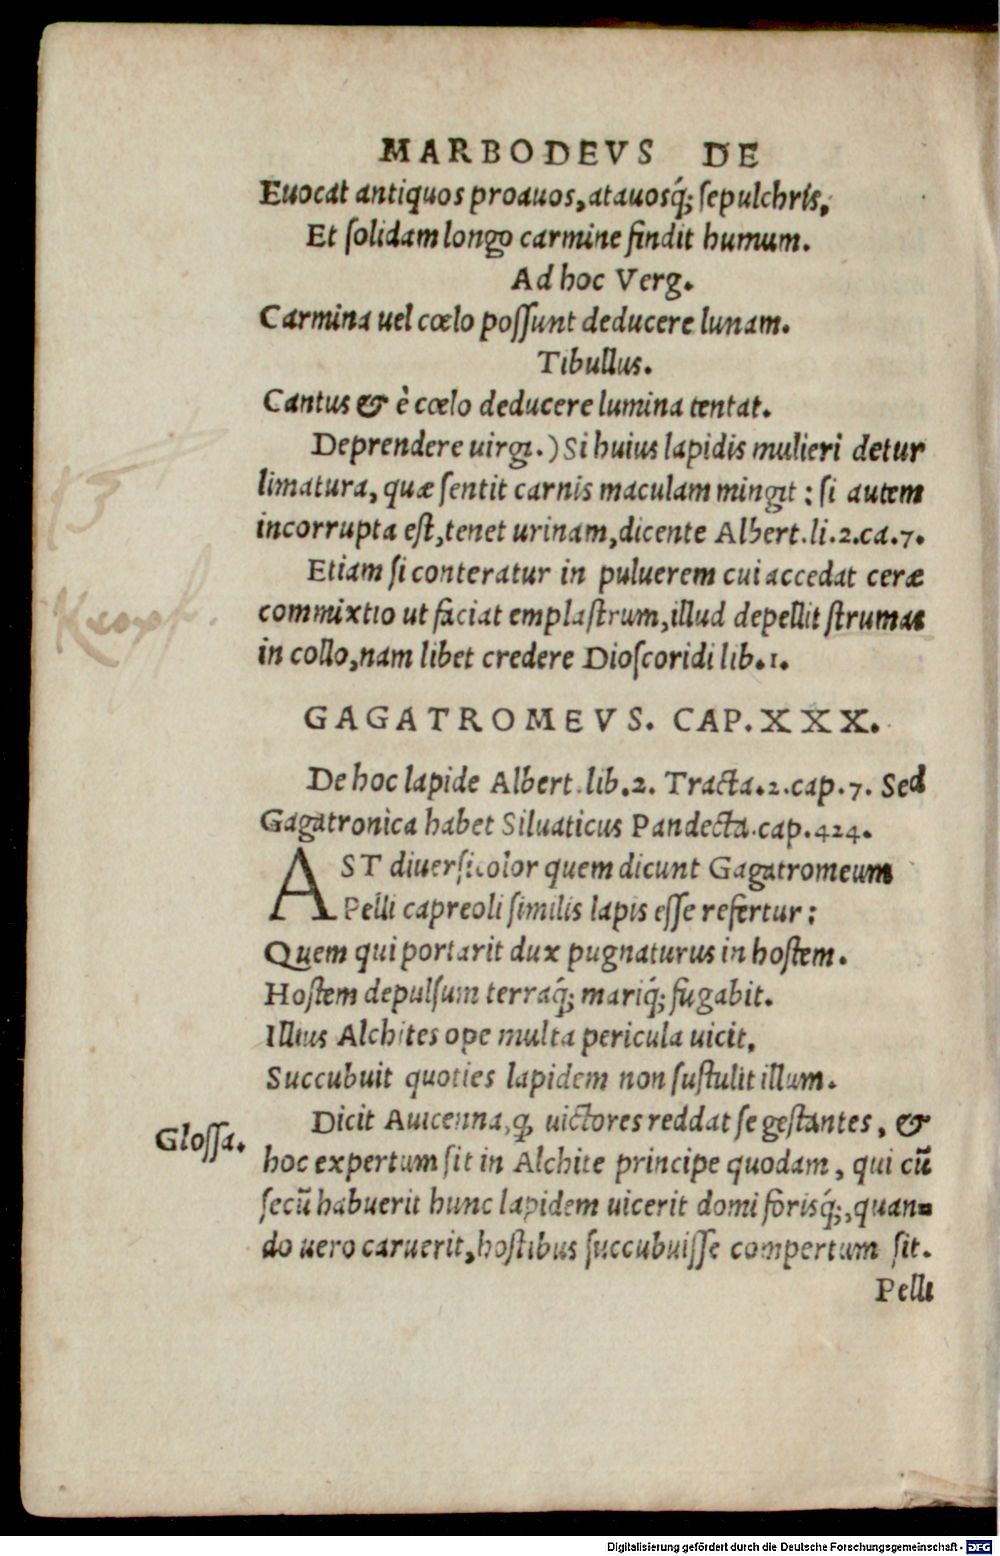 MARBODEVS DE
Euocat antiquos proauos, atauosq́; sepulchris,
Et solidam longo carmine findit humum.
Ad hoc Verg.
Carmina uel cœlo possunt deducere lunam.
Tibullus.
Cantus & è cœlo deducere lumina tentat.
Deprendere uirgi.) Si huius lapidis mulieri detur
limatura, quæ sentit carnis maculam mingit: si autem
incorrupta est, tenet urinam, dicente Albert. li. 2. ca. 7.
Etiam si conteratur in puluerem cui accedat ceræ
commixtio ut faciat emplastrum, illud depellit strumas
in collo, nam libet credere Dioscoridi lib. 1.
GAGATROMEVS. CAP. XXX.
De hoc lapide Albert. lib. 2. Tracta. 2. cap. 7. Sed
Gagatronica habet Siluaticus Pandecta. cap. 424.
AST diuersicolor quem dicunt Gagatromeum
Pelli capreoli similis lapis esse refertur:
Quem qui portarit dux pugnaturus in hostem.
Hostem depulsum terraq́; mariq́; fugabit.
Illius Alchites ope multa pericula uicit,
Succubuit quoties lapidem non sustulit illum.
Glossa.
Dicit Auicenna, q, uictores reddat se gestantes, &
hoc expertum sit in Alchite principe quodam, qui cũ
secũ habuerit hunc lapidem uicerit domi forisq́;, quan-
do uero caruerit, hostibus succubuisse compertum sit.
Pelli
Digitalisierung gefördert durch die Deutsche Forschungsgemeinschaft - DFG